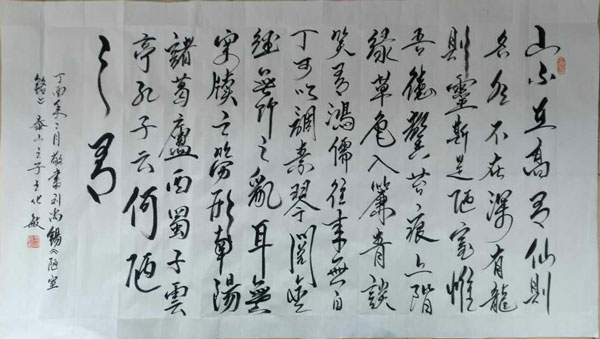 山不在高有仙則
名水不在深有龍
則靈斯是陋室惟
吾德馨苔痕上階
綠草色入簾青談
笑有鴻儒往來無白
丁可以調素琴閱金
經無竹之亂耳無
案牘之勞形南陽
諸葛廬西蜀子雲
亭孔子云何陋
之有
丁酉年二月敬書刘禹錫《陋室
銘》泰山之子于化敏